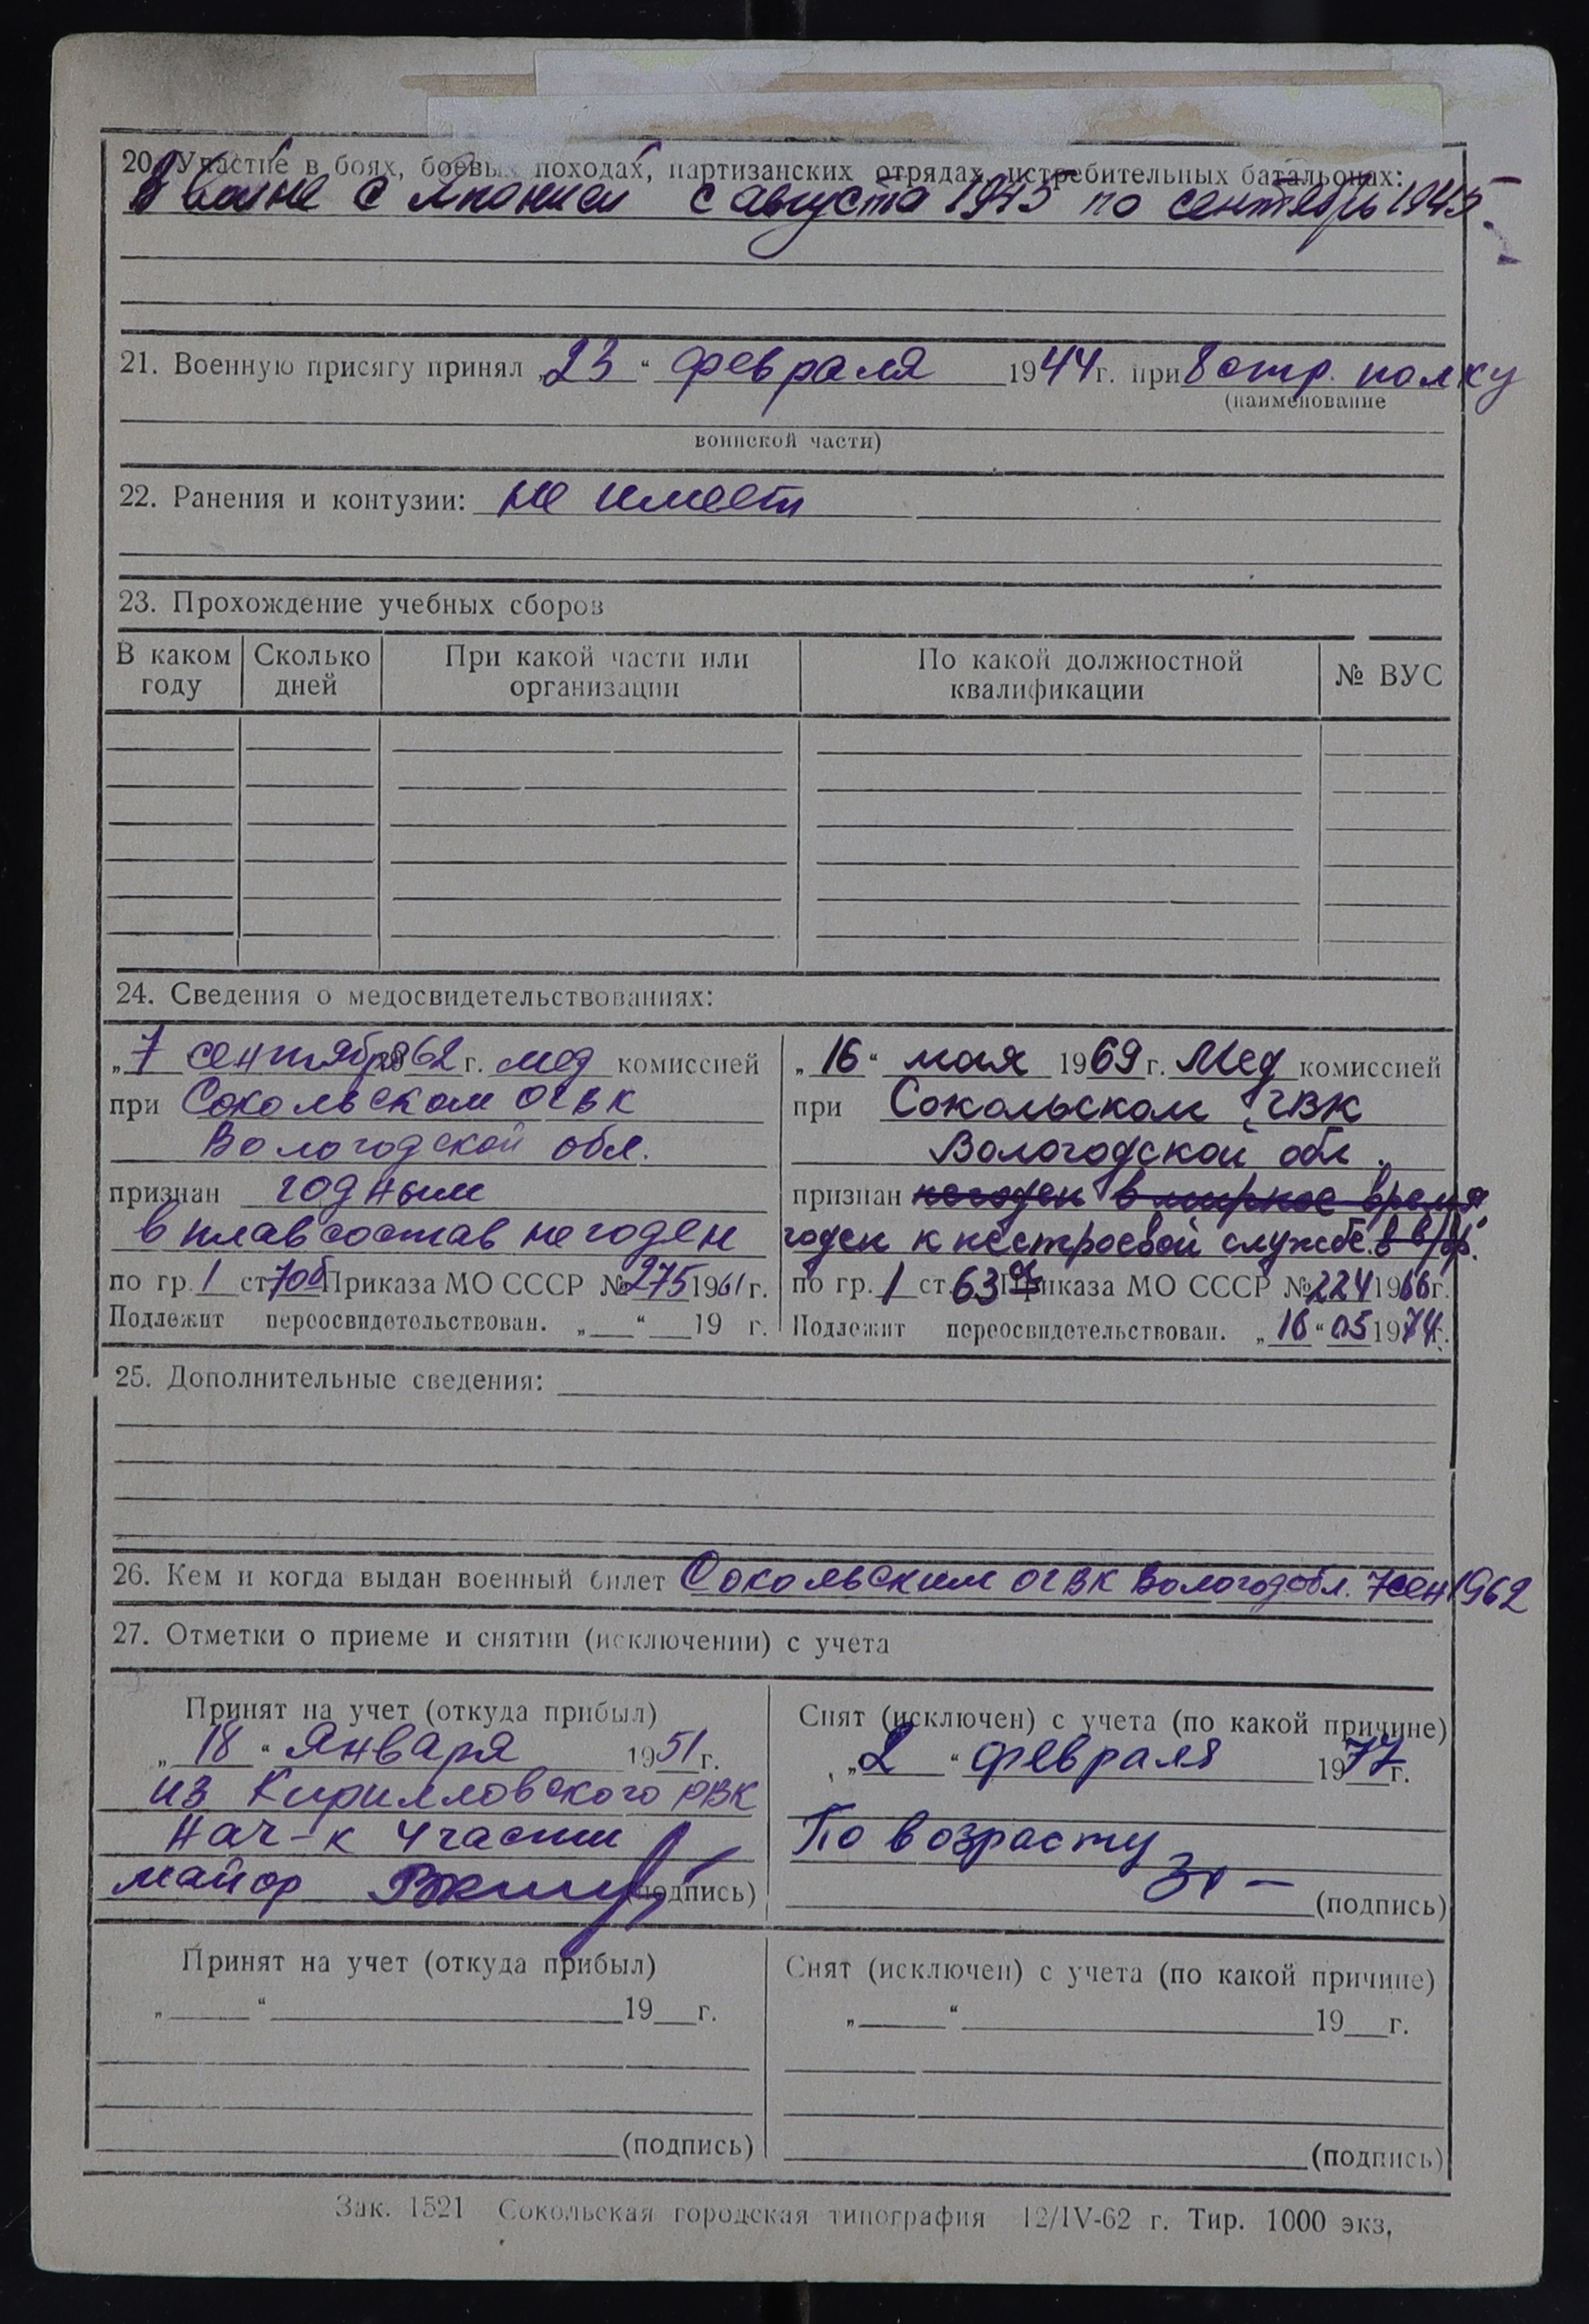 20. Участие в боях, боевых походах, партизанских отрядах, истребительных батальонах:
В войне с Японией с августа 1945 по сентябрь 1945
21. Военную присягу принял „23“ февраля 1944 г. при 8 стр. полку
(наименование
воинской части)
22. Ранения и контузии: не имеет
23. Прохождение учебных сборов
В каком году Сколько дней При какой части или организации По какой должностной квалификации № ВУС
24. Сведения о медосвидетельствованиях:
„7 сентября 1962 г. мед комиссией
при Сокольском ОГВК
Вологодской обл.
признан годным
в плавсостав не годен
по гр. 1 ст. 70б Приказа МО СССР № 275 1961 г.
Подлежит переосвидетельствован. „__“ __ 19 г.
„16“ мая 1969 г. Мед комиссией
при Сокольском ГВК
Вологодской обл.
признан негоден в мирное время
годен к нестроевой службе в в/вр.
по гр. 1 ст. 63 Приказа МО СССР № 224 1966 г.
Подлежит переосвидетельствован. „16“ 05 1974 г.
25. Дополнительные сведения:
26. Кем и когда выдан военный билет Сокольским ОГВК Вологод обл. 7 сен 1962
27. Отметки о приеме и снятии (исключении) с учета
Принят на учет (откуда прибыл)
„18“ Января 1951 г.
из Кирилловского РВК
Нач-к 4 части
майор (подпись)
Снят (исключен) с учета (по какой причине)
„2“ февраля 1977 г.
По возрасту
(подпись)
Принят на учет (откуда прибыл)
„____“ ____ 19__ г.
(подпись)
Снят (исключен) с учета (по какой причине)
„____“ ____ 19__ г.
(подпись)
Зак. 1521 Сокольская городская типография 12/IV-62 г. Тир. 1000 экз,